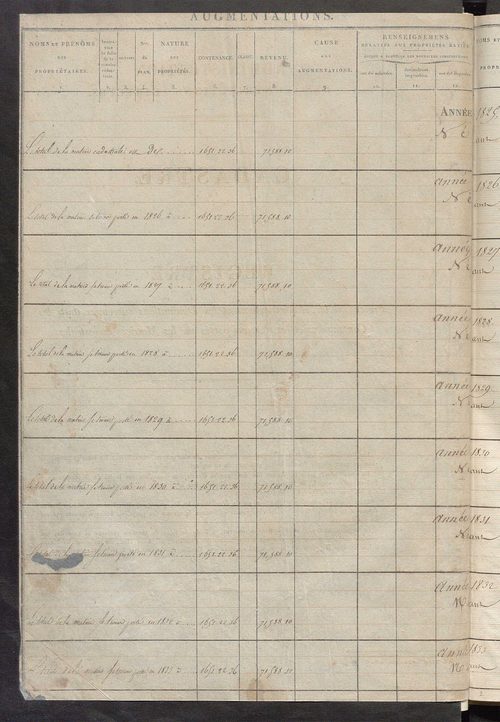 AUGMENTATIONS.
NOMS ET PRÉNOMS DES PROPRIÉTAIRES.
Nos. du PLAN.
NATURE DES PROPRIÉTÉS.
CONTENANCE.
CLASSE.
REVENU.
CAUSE DES AUGMENTATIONS.
RENSEIGNEMENS
RELATIFS AUX PROPRIÉTÉS BATIES
NOMS ET
ANNÉE 1825
Néant
Le total de la matrice cadastrale est De 1651.22.36 71,588.10
année 1826
Néant
Le total de la matrice se trouve porté en 1826 à 1651.22.36 71,588.10
année 1827
Néant
Le total de la matrice se trouve porté en 1827 à 1651.22.36 71,588.10
année 1828
Néant
Le total de la matrice se trouve porté en 1828 à 1651.22.36 71,588.10
année 1829
Néant
Le total de la matrice se trouve porté en 1829 à 1651.22.36 71,588.10
année 1830
Néant
Le total de la matrice se trouve porté en 1830 à 1651.22.36 71,588.10
année 1831
Néant
Le total de la matrice se trouve porté en 1831 à 1651.22.36 71,588.10
année 1832
Néant
Le total de la matrice se trouve porté en 1832 à 1651.22.36 71,588.10
année 1833
Néant
Le total de la matrice se trouve porté en 1833 à 1651.22.36 71,588.10